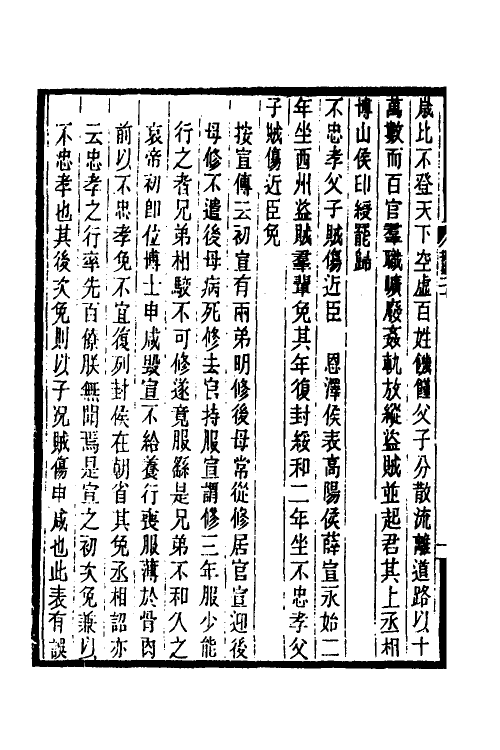 歲比不登天下空虛百姓饑饉父子分散流離道路以十
萬數而百官羣職曠廢姦軌放縱盜賊並起君其上丞相
博山侯印綬罷歸
不忠孝父子賊傷近臣　恩澤侯表高陽侯薛宣永始二
年坐西州盜賊羣輩免其年復封綏和二年坐不忠孝父
子賊傷近臣免
按宣傳云初宣有兩弟明修後母常從修居官宣迎後
母修不遣後母病死修去官持服宣謂修三年服少能
行之者兄弟相駁不可修遂竟服繇是兄弟不和久之
哀帝初卽位博士申咸毀宣不給養行喪服薄於骨肉
前以不忠孝免不宜復列封侯在朝省其免丞相詔亦
云忠孝之行率先百僚朕無聞焉是宣之初次免兼以
不忠孝也其後次免則以子况賊傷申咸也此表有誤